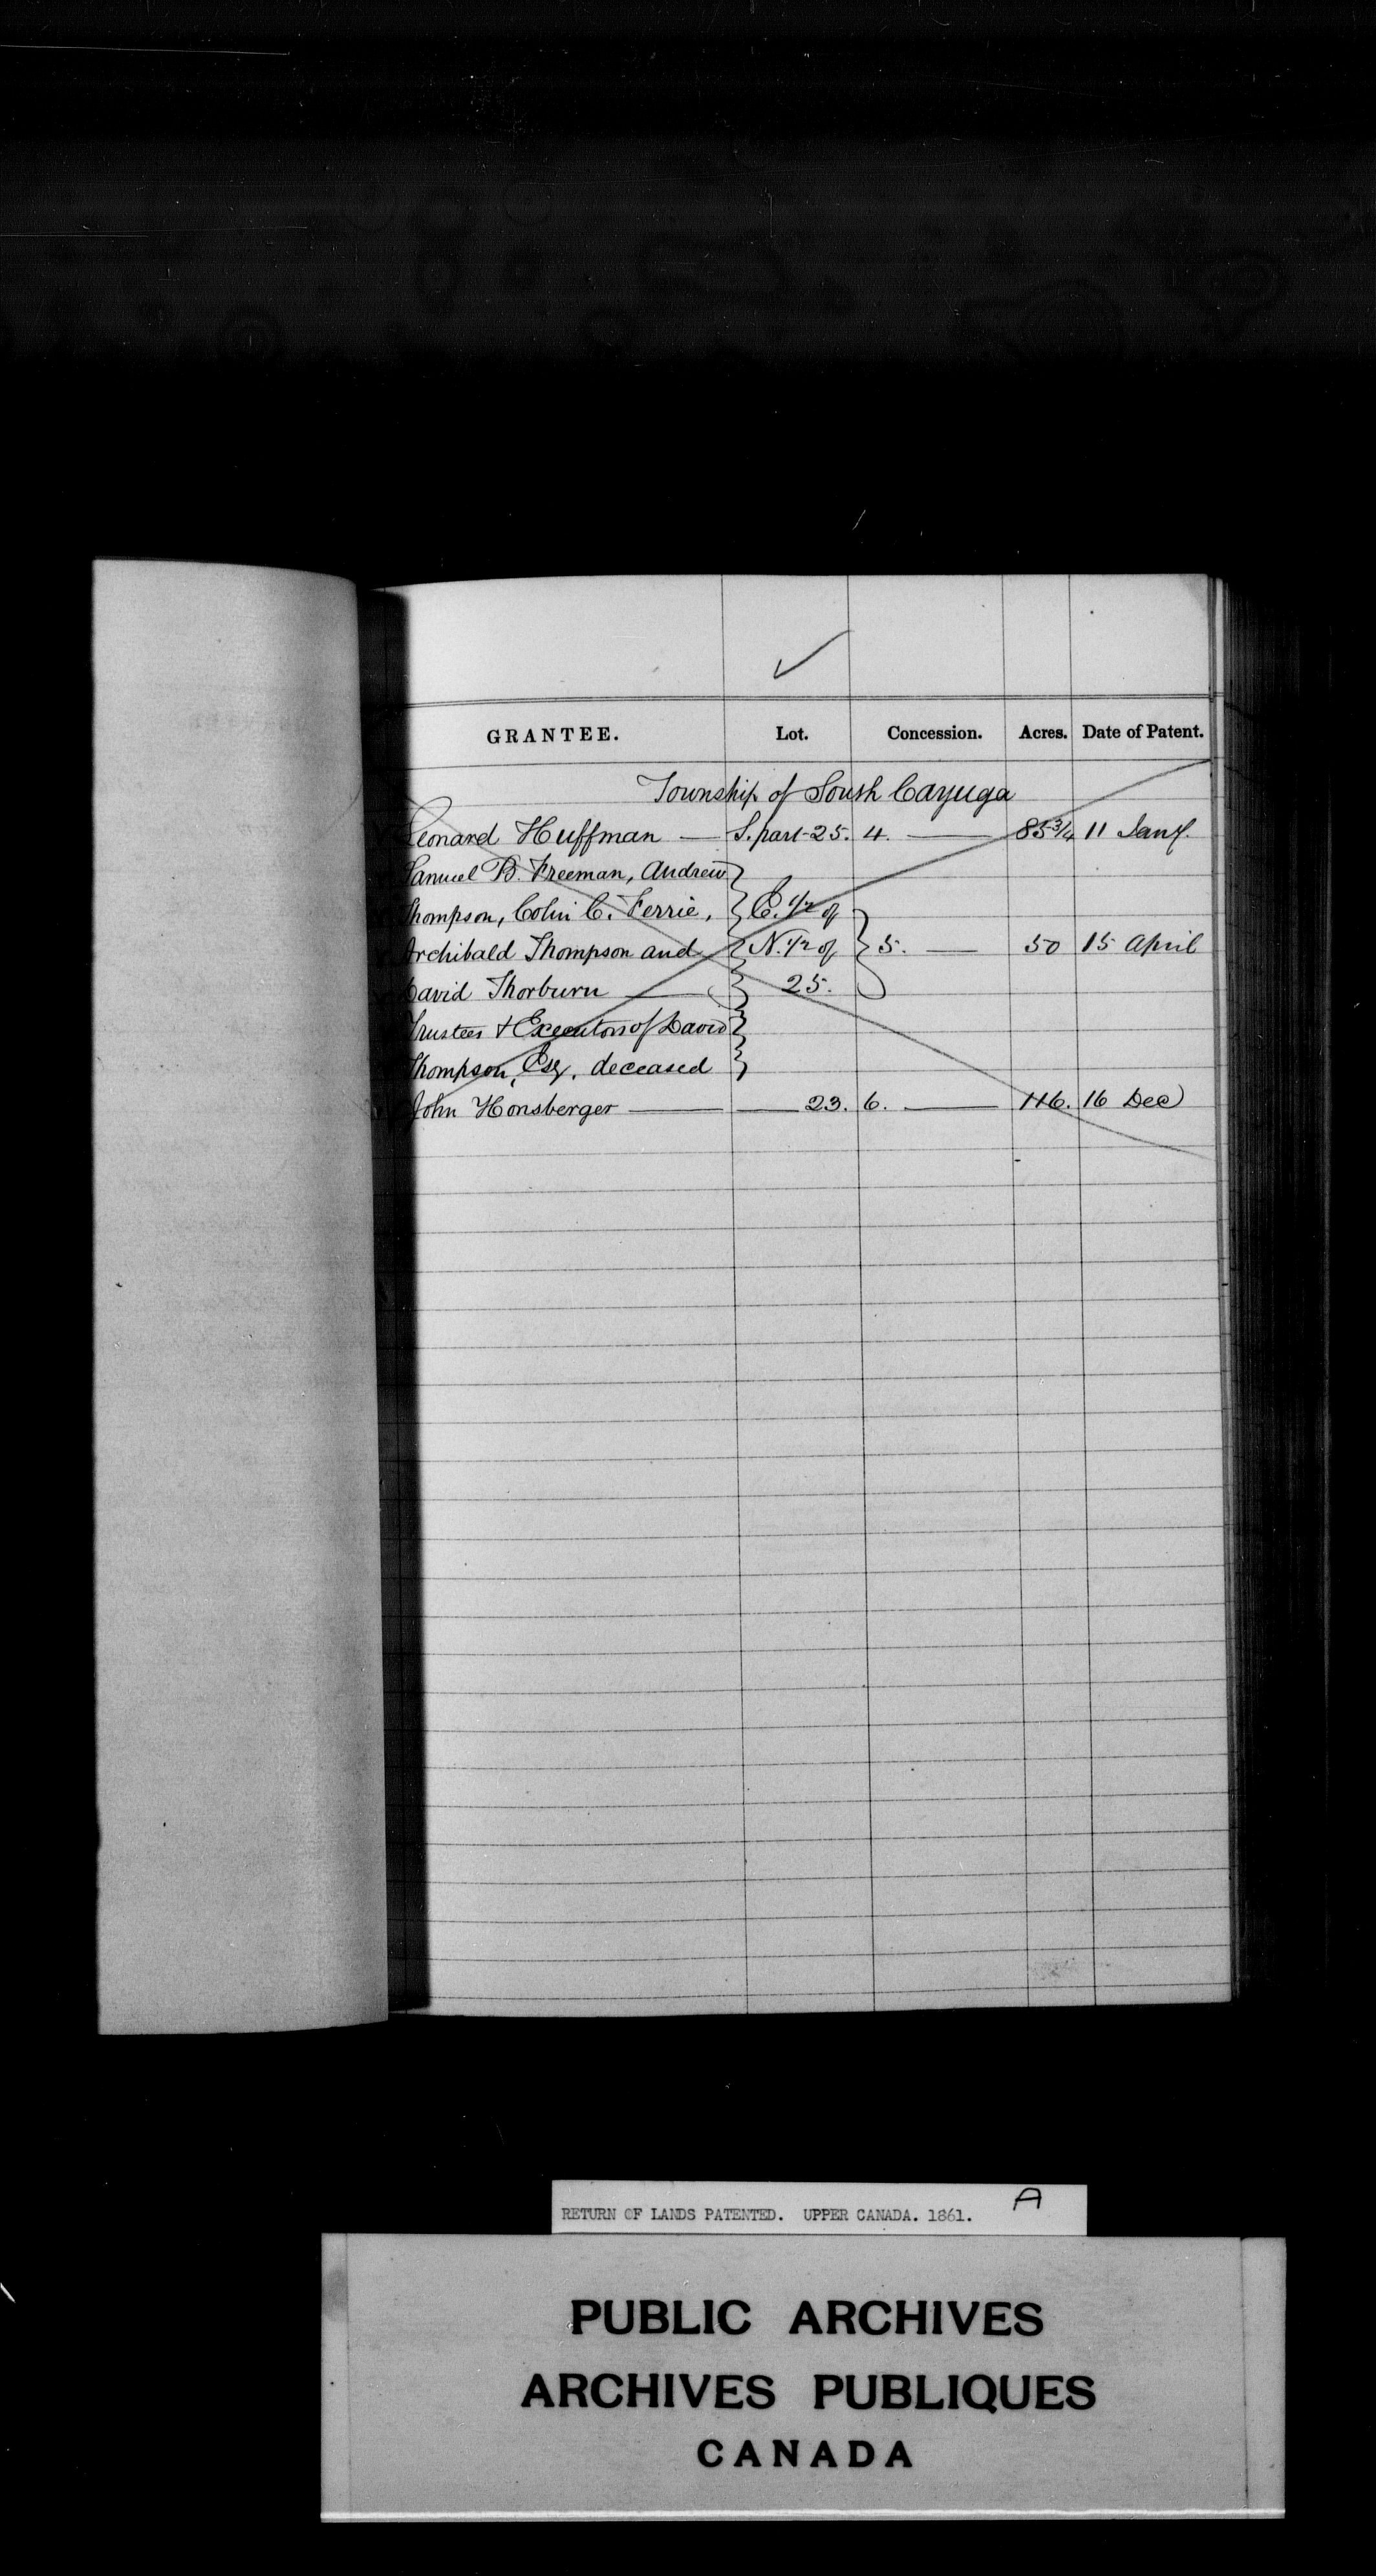 GRANTEE. Lot. Concession. Acres. Date of Patent.
Township of South Cayuga
Leonard Huffman — S. part 25. 4. — 85 3/4 11 Jany.
Samuel B. Freeman, Andrew
Thompson, Colin C. Ferrie, E. 1/2 of
Archibald Thompson and N. 1/2 of 5. — 50 15 April
David Thorburn — 25.
Trustees & Executors of David
Thompson, Esq. deceased
John Honsberger — 23. 6. — 116. 16 Dec
RETURN OF LANDS PATENTED. UPPER CANADA. 1861. A
PUBLIC ARCHIVES
ARCHIVES PUBLIQUES
CANADA